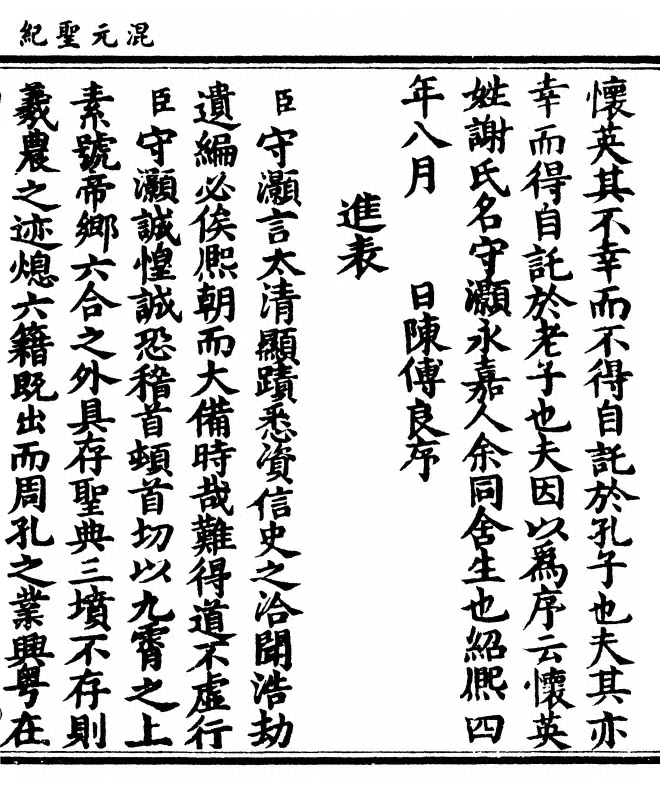 混元聖紀
懷英其不幸而不得自託於孔子也夫其亦
幸而得自託於老子也夫因以爲序云懷英
姓謝氏名守灝永嘉人余同舍生也紹熈四
年八月　日陳傅良序
進表
臣守灝言太清顯蹟悉資信史之洽聞浩劫
遺編必俟熈朝而大備時哉難得道不虛行
臣守灝誠惶誠恐稽首頓首切以九霄之上
素號帝鄉六合之外具存聖典三墳不存則
羲農之迹熄六籍既出而周孔之業興粤在